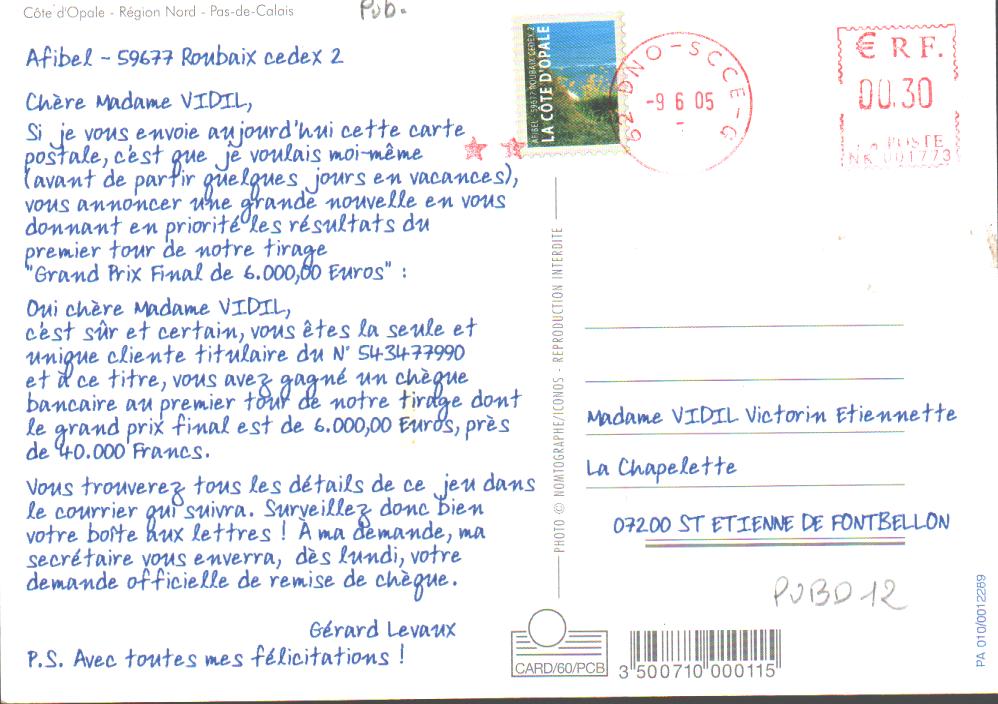 Côte d'Opale - Région Nord - Pas-de-Calais
Pub.
Afibel - 59677 Roubaix cedex 2
Chère Madame VIDIL,
Si je vous envoie aujourd'hui cette carte
postale, c'est que je voulais moi-même
(avant de partir quelques jours en vacances),
vous annoncer une grande nouvelle en vous
donnant en priorité les résultats du
premier tour de notre tirage
"Grand Prix Final de 6.000,00 Euros" :
Oui chère Madame VIDIL,
c'est sûr et certain, vous êtes la seule et
unique cliente titulaire du N° 543477990
et à ce titre, vous avez gagné un chèque
bancaire au premier tour de notre tirage dont
le grand prix final est de 6.000,00 Euros, près
de 40.000 Francs.
Vous trouverez tous les détails de ce jeu dans
le courrier qui suivra. Surveillez donc bien
votre boîte aux lettres ! À ma demande, ma
secrétaire vous enverra, dès lundi, votre
demande officielle de remise de chèque.
Gérard Levaux
P.S. Avec toutes mes félicitations !
AFIBEL - 59677 ROUBAIX CEDEX 2
LA CÔTE D'OPALE
62 DNO-SCCE-G
-9 6 05
€ R F.
00.30
LA POSTE
NK 001773
PHOTO © NOMTOGRAPHE/ICONOS - REPRODUCTION INTERDITE
Madame VIDIL Victorin Etiennette
La Chapelette
07200 ST ETIENNE DE FONTBELLON
PUBD 12
CARD/60/PCB
3 500710 000115
PA 010/0012289